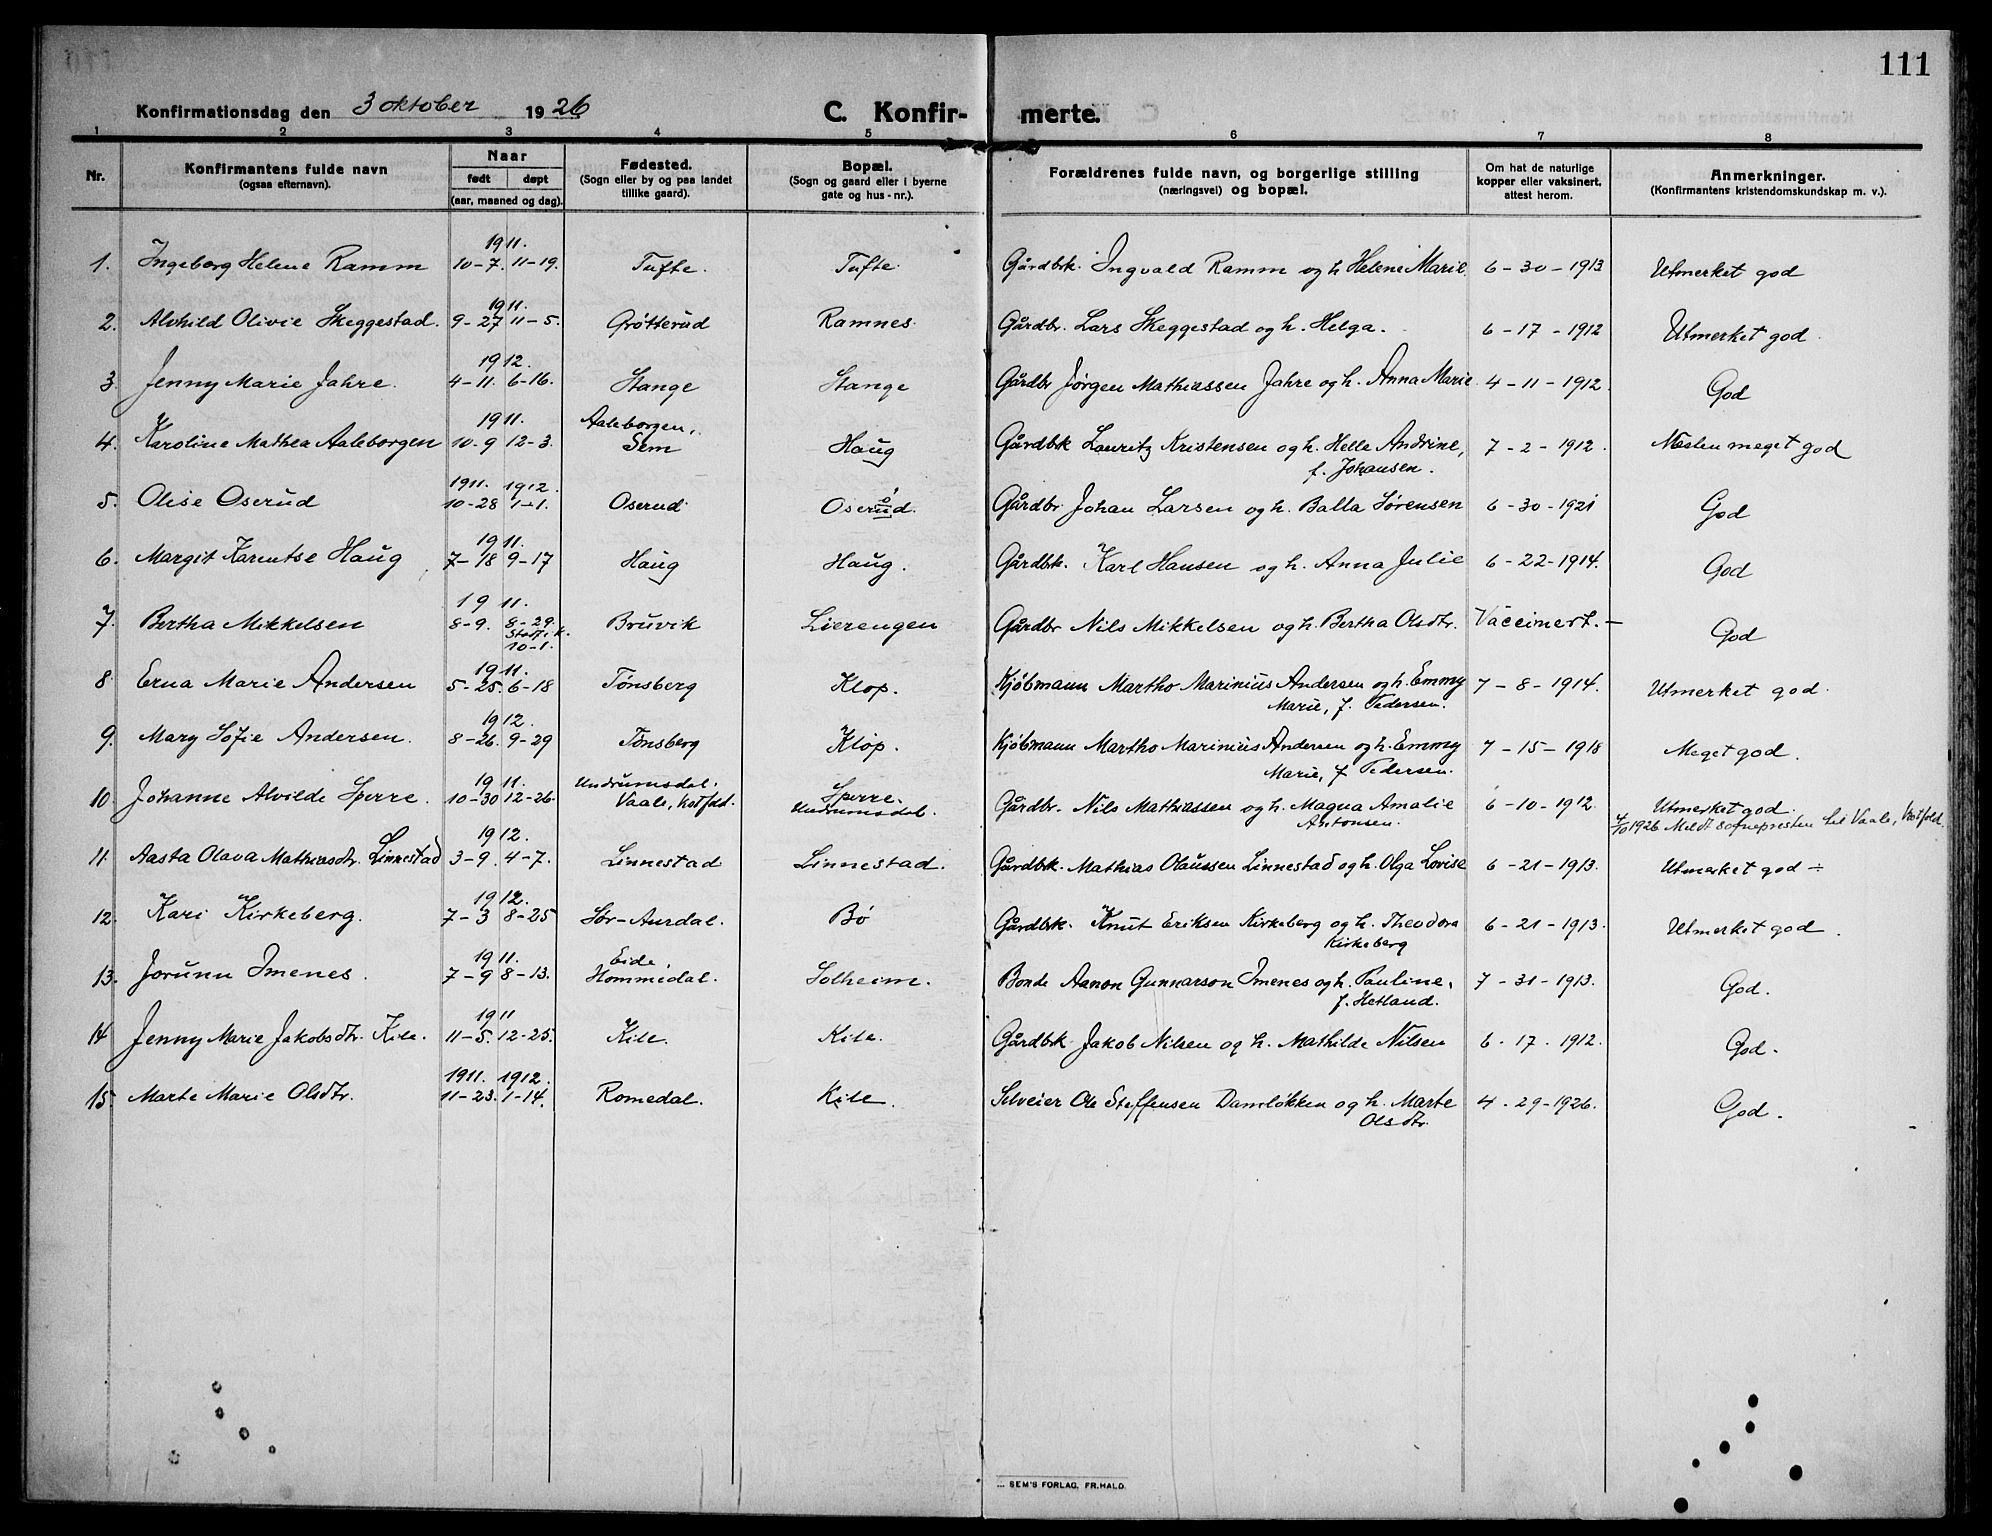 111
Konfirmationsdag den 3 oktober 1926 C. Konfir- merte.
1 2 3 4 5 6 7 8
Nr. Konfirmantens fulde navn (ogsaa efternavn). Naar født døpt (aar, maaned og dag). Fødested. (Sogn eller by og paa landet tillike gaard). Bopæl. (Sogn og gaard eller i byerne gate og hus-nr.). Forældrenes fulde navn, og borgerlige stilling (næringsvei) og bopæl. Om hat de naturlige kopper eller vaksinert, attest herom. Anmerkninger. (Konfirmantens kristendomskundskap m. v.).
1911.
1. Ingeborg Helene Ramm 10-7. 11-19. Tufte. Tufte Gårdbrk. Ingvald Ramm og h Helene Marie 6-30-1913 Utmerket god
1911.
2. Alvhild Olivie Skeggestad. 9-27 11-5. Grötterud Ramnes Gårdbr. Lars Skeggestad og h. Helga. 6-17-1912 Utmerket god.
1912.
3. Jenny Marie Jahre. 4-11. 6-16. Stange Stange Gårdbr Jørgen Mathiassen Jahre og h. Anna Marie 4-11-1912. God
1911. Aaleborgen,
4. Karoline Mathea Aaleborgen 10-9 12-3. Sem Haug Gårdbk Lauritz Kristensen og h. Helle Andrine, 7-2-1912. Næsten meget god
f. Johansen.
1911. 1912.
5. Olise Oserud 10-28 1-1. Oserud Oserud. Gårdbr Johan Larsen og h. Balla Sørensen 6-30-1921 God
1911.
6. Margit Karentse Haug 7-18 9-17 Haug Haug. Gårdbk. Karl Hansen og h. Anna Julie 6-22-1914. God
1911.
7. Bertha Mikkelsen 8-9. 8-29. Bruvik Lierengen Gårdbr Nils Mikkelsen og h. Bertha Olsdtr. Vaccinert.- God
Stadf. i k.
10-1.
1911.
8. Erna Marie Andersen 5-25. 6-18 Tønsberg Klop. Kjøbmann Martho Marinius Andersen og h. Emmy 7-8-1914. Utmerket god.
Marie, f. Pedersen.
1912.
9. Mary Sofie Andersen. 8-26. 9-29 Tønsberg Klop. Kjøbmann Martho Marinius Andersen og h. Emmy 7-15-1918 Meget god.
Marie, f Pedersen.
1911. Undrumsdal.
10. Johanne Alvilde Sperre. 10-30 12-26. Vaale, Vestfold. Sperre. Undrumsdal. Gårdbr. Nils Mathiassen og h. Magna Amalie 6-10-1912. Utmerket god.
Antonsen. 4/10 1926 Meldt sognepresten til Vaale, Vestfold.
1912.
11. Aasta Olava Mathiasdtr. Linnestad 3-9. 4-7. Linnestad Linnestad. Gårdbrk. Mathias Olaussen Linnestad og h. Olga Lovise 6-21-1913. Utmerket god ÷
1912.
12. Kari Kirkeberg. 7-3 8-25 Sør-Aurdal. Bø Gårdbrk. Knut Eriksen Kirkeberg og h. Theodora 6-21-1913. Utmerket god.
Kirkeberg
1911. Eide,
13. Jorunn Imenes. 7-9 8-13. Hommedal. Solheim. Bonde Aanon Gunnarson Imenes og h. Pauline, 7-31-1913. God.
f. Hetland.
1911
14 Jenny Marie Jakobsdtr. Kile. 11-5. 12-25. Kile. Kile. Gårdbrk. Jakob Nilsen og h. Mathilde Nilsen 6-17-1912. God.
1911. 1912.
15. Marte Marie Olsdtr. 11-23. 1-14. Romedal. Kile. Selveier Ole Steffensen Damløkken og h. Marte 4-29-1926. God.
Olsdtr.
SEM'S FORLAG, FR. HALD.